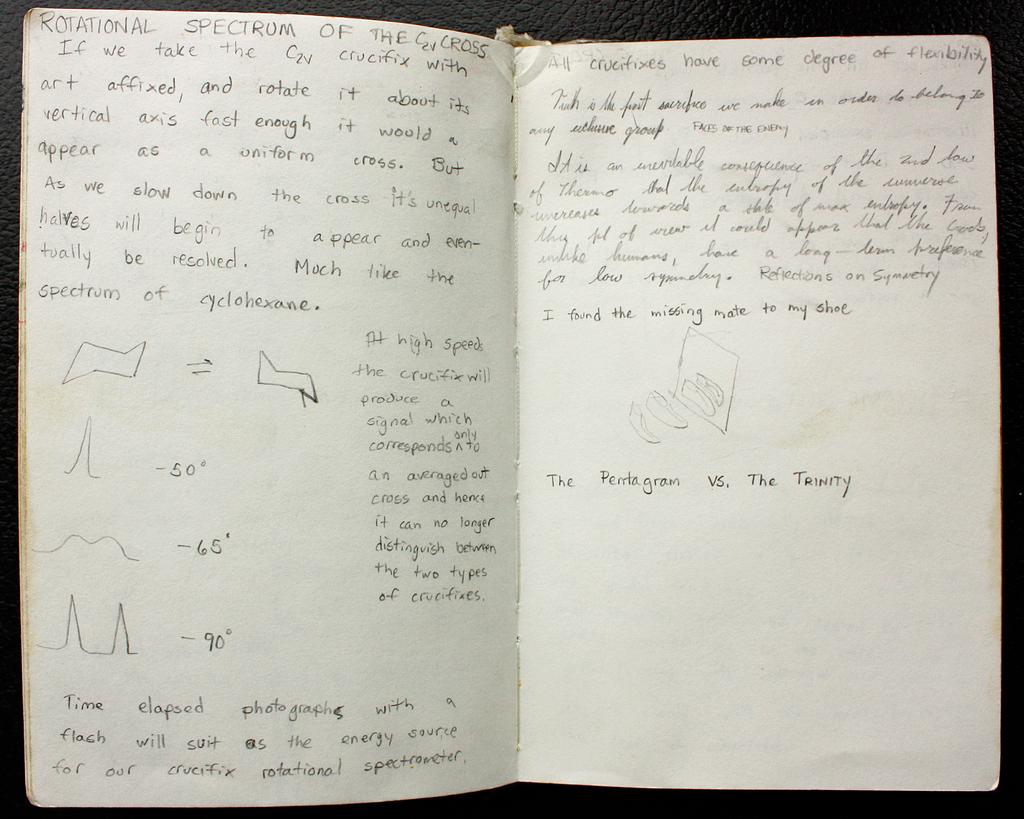 ROTATIONAL SPECTRUM OF THE C2V CROSS
If we take the C2V crucifix with
art affixed, and rotate it about its
vertical axis fast enough it would a
appear as a uniform cross. But
As we slow down the cross it's unequal
halves will begin to appear and even-
tually be resolved. Much like the
spectrum of cyclohexane.
At high speeds
the crucifix will
produce a
signal which
corresponds only to
an averaged out
cross and hence
it can no longer
distinguish between
the two types
of crucifixes.
-50°
-65°
-90°
Time elapsed photographs with a
flash will suit as the energy source
for our crucifix rotational spectrometer.
All crucifixes have some degree of flexibility
Truth is the first sacrifice we make in order to belong to
any exclusive group. FACES OF THE ENEMY
It is an inevitable consequence of the 2nd law
of Thermo that the entropy of the universe
increases towards a state of max entropy. From
this pt of view it could appear that the Gods,
unlike humans, have a long-term preference
for low symmetry. Reflections on Symmetry
I found the missing mate to my shoe
The Pentagram VS. The TRINITY